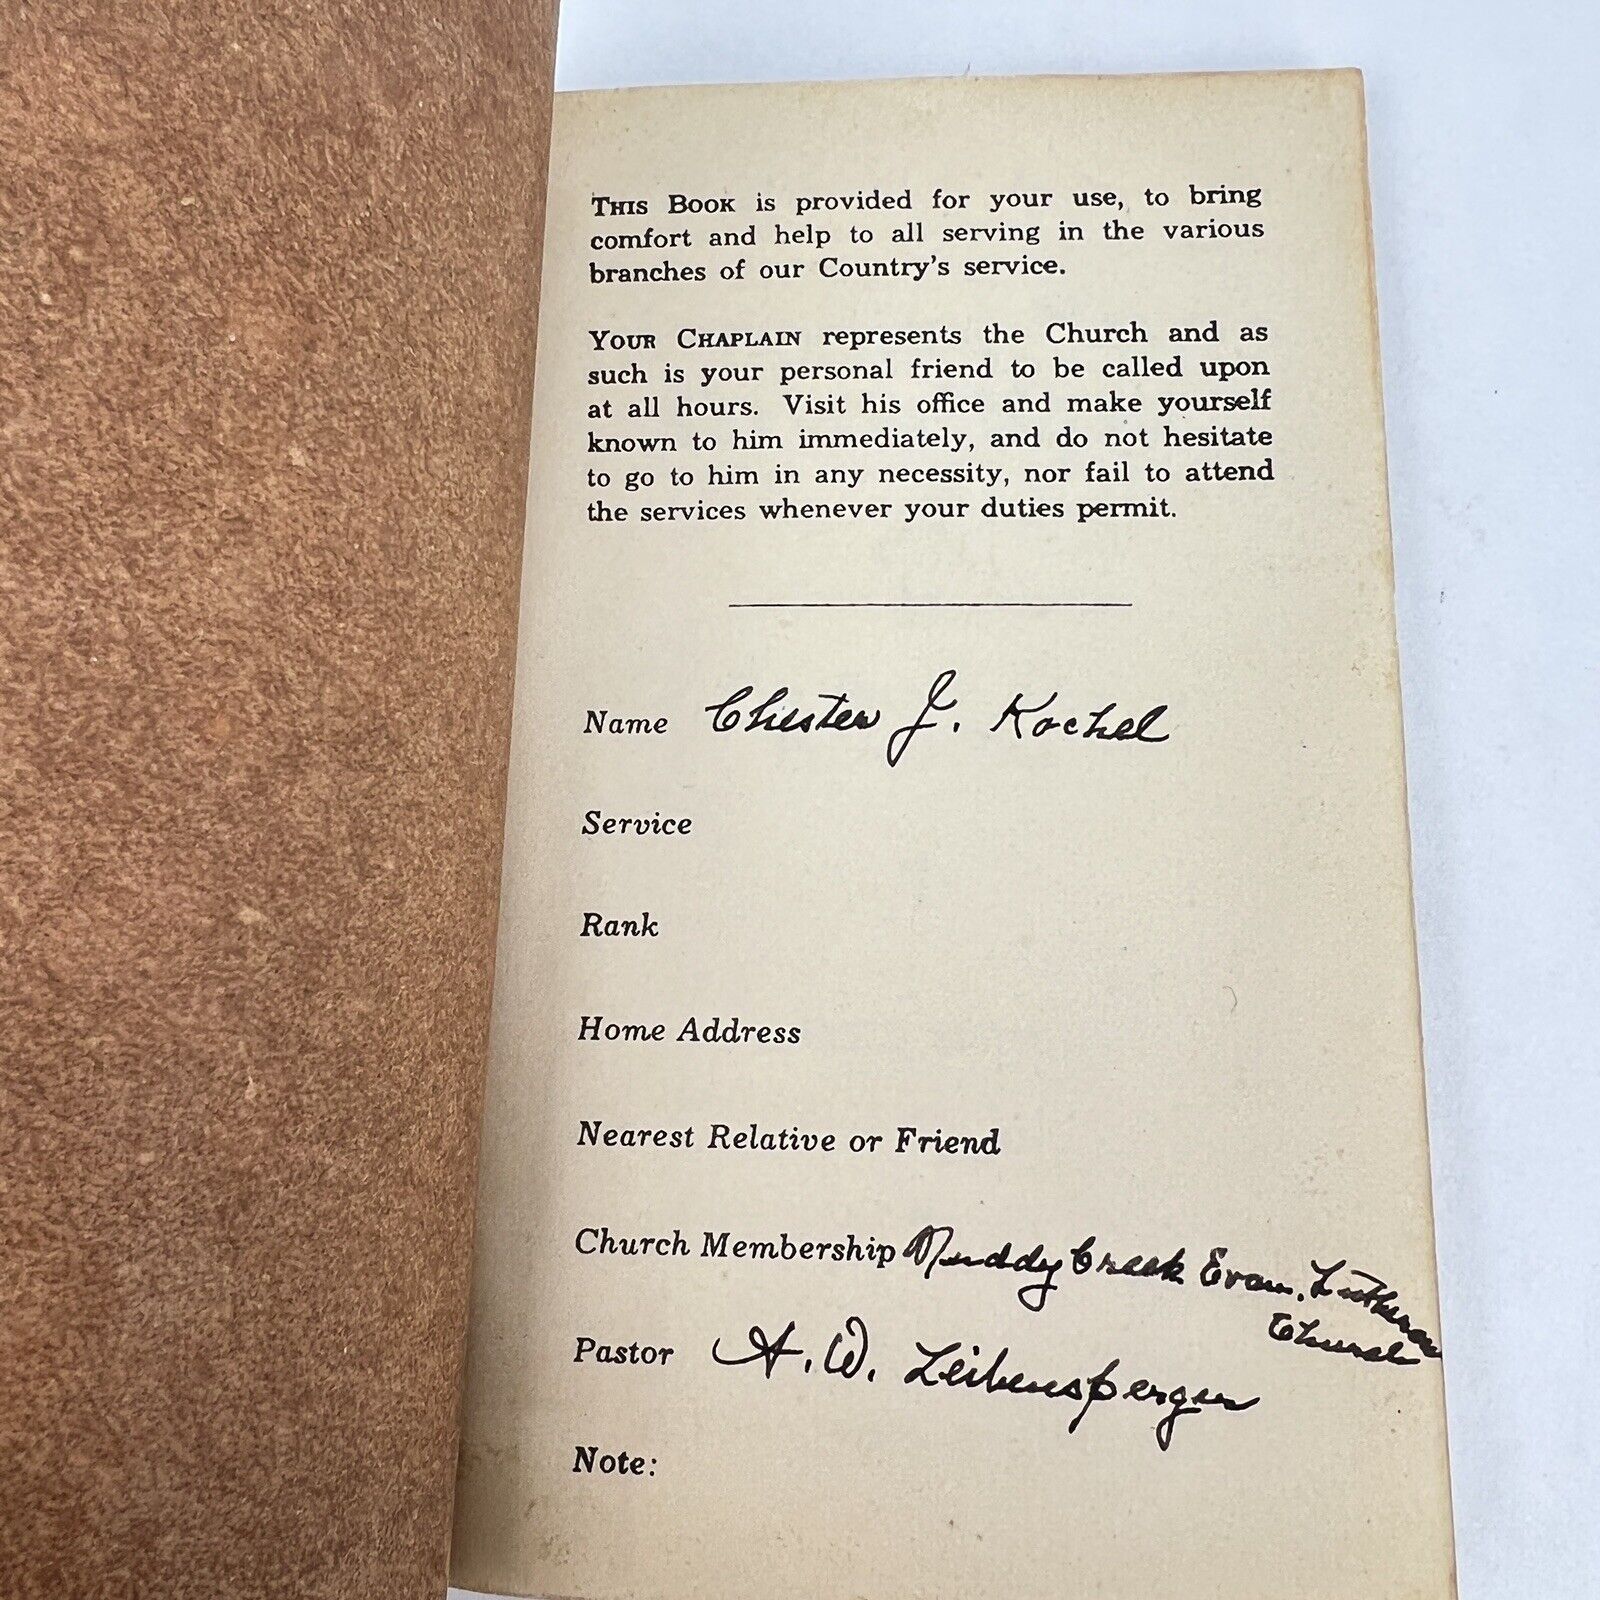 THIS BOOK is provided for your use, to bring
comfort and help to all serving in the various
branches of our Country's service.
YOUR CHAPLAIN represents the Church and as
such is your personal friend to be called upon
at all hours. Visit his office and make yourself
known to him immediately, and do not hesitate
to go to him in any necessity, nor fail to attend
the services whenever your duties permit.
Name Chester J. Kochel
Service
Rank
Home Address
Nearest Relative or Friend
Church Membership Muddy Creek Evan. Lutheran
Church
Pastor A. W. Leibensperger
Note: